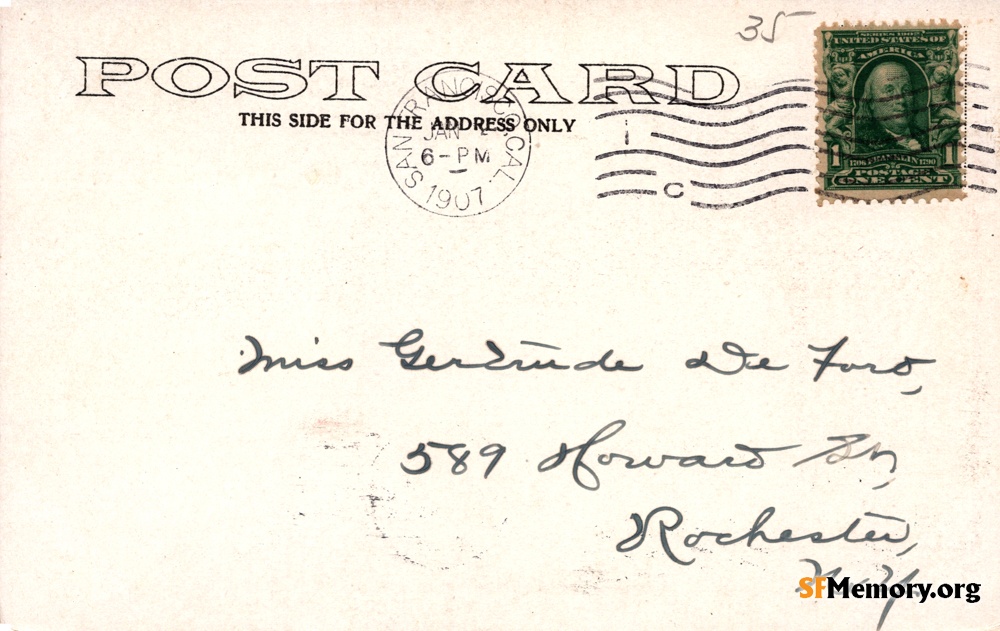 35
POST CARD
THIS SIDE FOR THE ADDRESS ONLY
SAN FRANCISCO, CAL.
JAN
6-PM
1907
1
C
SERIES 1902
UNITED STATES OF
AMERICA
1 1
1706 FRANKLIN 1790
POSTAGE
ONE CENT
Miss Gertrude De Ford,
589 Howard
Rochester,
N.Y.
SFMemory.org